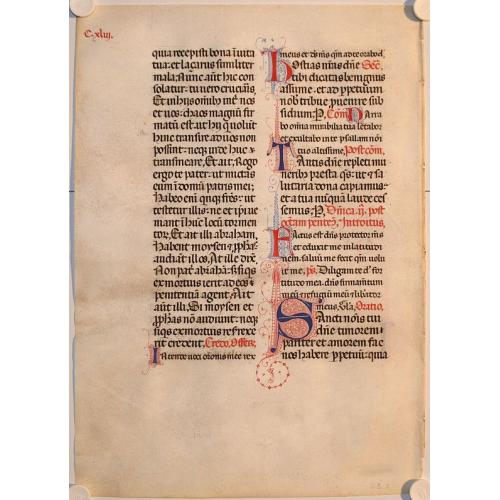 C. xliij.
quia recepisti bona ĩ uita
tua: et laçarus similiter
mala, Nunc aũt hic con
solatur: tu uero cruciaris,
Et in hijs oĩnib; ĩnt̃ nos
et uos: chaos magnũ fir
matũ est: ut hij qui uolũt
hinc transire ad uos non
possint: neq; inde huc
transmeare, Et ait, Rogo
ergo te pater: ut mittas
eum ĩ domũ patris mei,
Habeo eni quinq; fr̃es: ut
testetur illis: ne et ip̃i ue
niant ĩ hũc locũ tormen
tor̃, Et ait illi abraham,
Habent moysen et ꝓph̃as:
audiãt illos, At ille dix̃,
Non pat̃ abrahã: s; si q̃s
ex mortuis ierit ad eos:
penitentiã agent, Ait
aũt illi, Si moysen et
ꝓph̃as nõ audiunt: neq;
si q̃s ex mortuis resurrexe
rit credent, Credo, Offere,
Intende uoci or̃onis mee rex
meus et d̃s m̃s q̃m ad te orabo d̃,
Hostias nr̃as dñe Sec̃.
tibi dicatas benignus
assume: et ad ꝑpetuum
nob̃ tribue ꝓuenire sub
sidium; P, Com̃, Narra
bo omnia mirabilia tua letabor
et exultabo in te psallam nõi
tuo altissime, Postcom̃,
Tantis dñe repleti mu
neribꝰ presta q̃s: ut et sa
lutaria dona capiamus:
et a tua nũq̃ laude ces
semus: P, Dñica .ij. post
octam pentec̃, Introitus,
Factus est dñs protector m̃s
et eduxit me in latitudi
nem: saluũ me fecit qm̃ uolu
it me, p̃s. Diligam te d̃ for
titudo mea: dñs firmamẽtum
meũ et refugiũ meũ et liberator
meus, Gl̃a, Oratio,
Sancti nõis tui
dñe timorem
pariter et amorem fac
nos habere ꝑpetuũ: quia